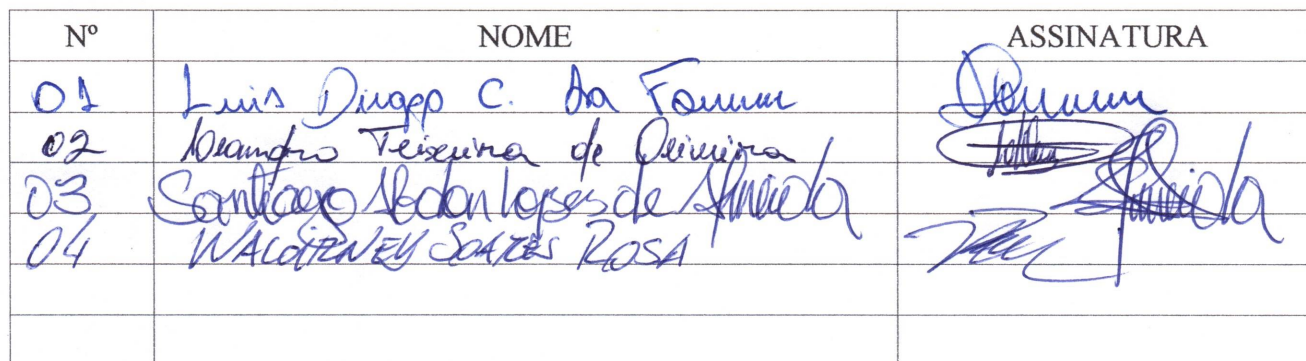 Nº NOME ASSINATURA
01 Luis Diogo C. da
02 Leandro Teixeira de Oliveira
03 Santiago Abdon Lopes de Almeida Almeida
04 WALDIRNEY SOARES ROSA